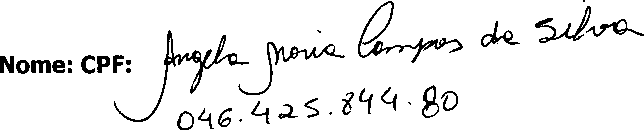 Nome: CPF: Angela Maria Campos da Silva
046.425.844.80